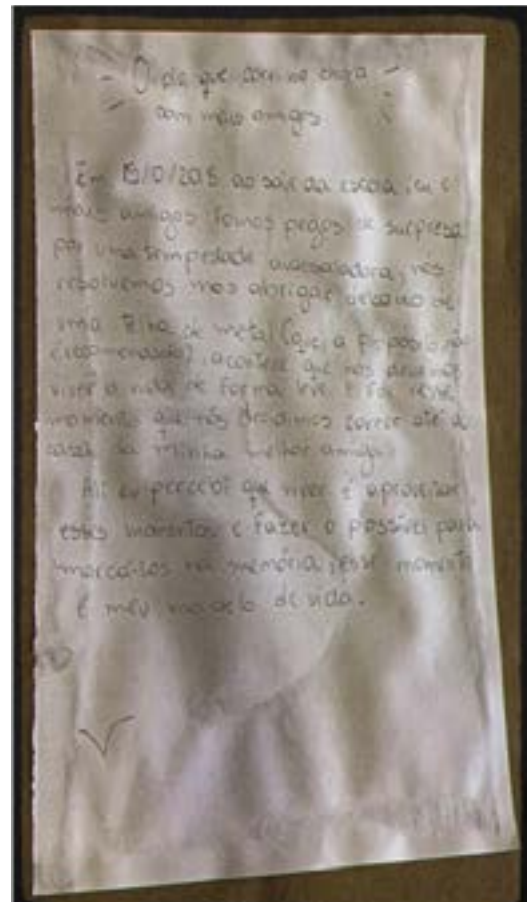 O dia que corri na chuva
com meus amigos
Em 15/10/2018 ao sair da escola, eu e
meus amigos fomos pegos de surpresa
por uma tempestade avassaladora, nós
resolvemos nos abrigar debaixo de
uma telha de metal (que a propósito não
recomendado), acontece que nós devemos
viver a vida de forma leve, e foi nesse
momento que nós decidimos correr até a
casa da minha melhor amiga.
Ali eu percebi que viver é aproveitar
esses momentos e fazer o possível para
marcá-los na memória, esse momento
é meu modelo de vida.